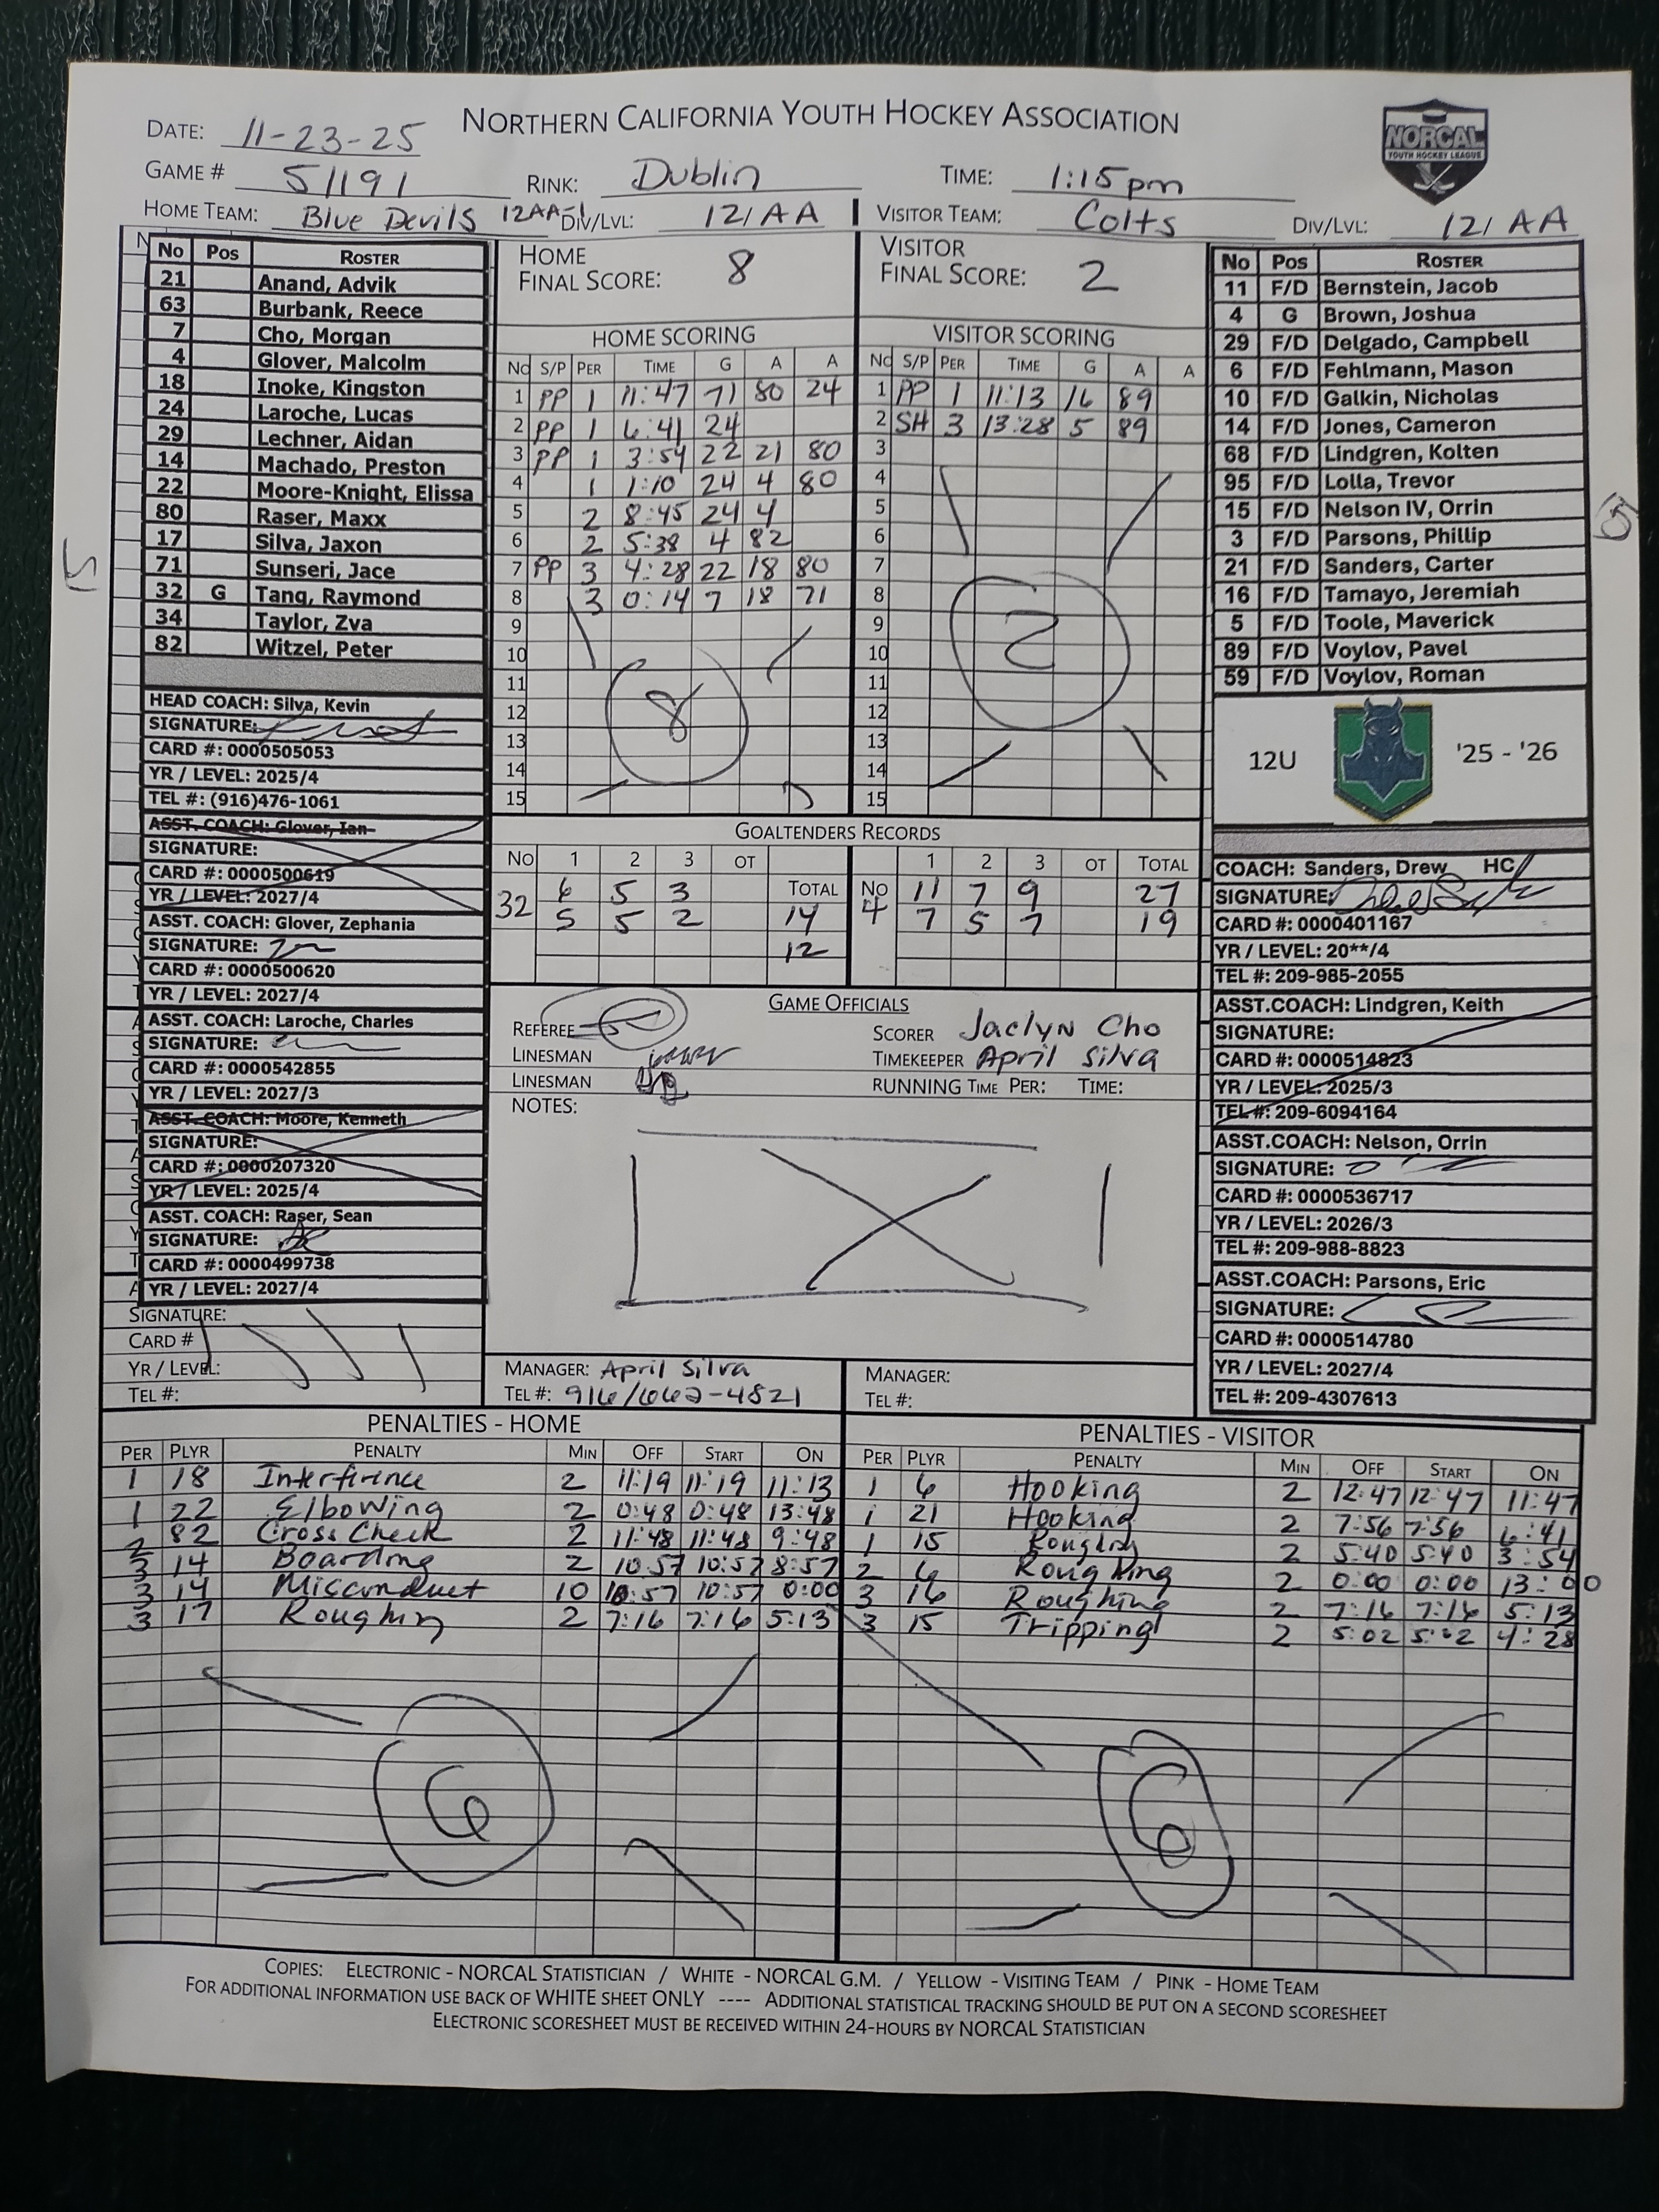 NORTHERN CALIFORNIA YOUTH HOCKEY ASSOCIATION
NORCAL
YOUTH HOCKEY LEAGUE
DATE: 11-23-25
GAME # 51191 RINK: Dublin TIME: 1:15pm
HOME TEAM: Blue Devils 12AA-1 DIV/LVL: 12/AA VISITOR TEAM: Colts DIV/LVL: 12/AA
No Pos ROSTER
21 Anand, Advik
63 Burbank, Reece
7 Cho, Morgan
4 Glover, Malcolm
18 Inoke, Kingston
24 Laroche, Lucas
29 Lechner, Aidan
14 Machado, Preston
22 Moore-Knight, Elissa
80 Raser, Maxx
17 Silva, Jaxon
71 Sunseri, Jace
32 G Tang, Raymond
34 Taylor, Zva
82 Witzel, Peter
15
HEAD COACH: Silva, Kevin
SIGNATURE:
CARD #: 0000505053
YR / LEVEL: 2025/4
TEL #: (916)476-1061
ASST. COACH: Glover, Ian
SIGNATURE:
CARD #: 0000500619
YR / LEVEL: 2027/4
ASST. COACH: Glover, Zephania
SIGNATURE:
CARD #: 0000500620
YR / LEVEL: 2027/4
ASST. COACH: Laroche, Charles
SIGNATURE:
CARD #: 0000542855
YR / LEVEL: 2027/3
ASST. COACH: Moore, Kenneth
SIGNATURE:
CARD #: 0000207320
YR / LEVEL: 2025/4
ASST. COACH: Raser, Sean
SIGNATURE:
CARD #: 0000499738
YR / LEVEL: 2027/4
SIGNATURE:
CARD #
YR / LEVEL:
TEL #:
HOME
FINAL SCORE: 8
HOME SCORING
No S/P PER TIME G A A
1 PP 1 11:47 71 80 24
2 PP 1 6:41 24
3 PP 1 3:54 22 21 80
4 1 1:10 24 4 80
5 2 8:45 24 4
6 2 5:38 4 82
7 PP 3 4:28 22 18 80
8 3 0:14 7 18 71
9
10
11
12
13
14
15
8
VISITOR
FINAL SCORE: 2
VISITOR SCORING
No S/P PER TIME G A A
1 PP 1 11:13 16 89
2 SH 3 13:28 5 89
3
4
5
6
7
8
9
10
11
12
13
14
15
2
GOALTENDERS RECORDS
NO 1 2 3 OT TOTAL
32 6 5 3 14
5 5 2 12
NO 1 2 3 OT TOTAL
4 11 7 9 27
7 5 7 19
GAME OFFICIALS
REFEREE
LINESMAN
LINESMAN
SCORER Jaclyn Cho
TIMEKEEPER April Silva
RUNNING TIME PER: TIME:
NOTES:
MANAGER: April Silva
TEL #: 916/662-4821
MANAGER:
TEL #:
No Pos ROSTER
11 F/D Bernstein, Jacob
4 G Brown, Joshua
29 F/D Delgado, Campbell
6 F/D Fehlmann, Mason
10 F/D Galkin, Nicholas
14 F/D Jones, Cameron
68 F/D Lindgren, Kolten
95 F/D Lolla, Trevor
15 F/D Nelson IV, Orrin
3 F/D Parsons, Phillip
21 F/D Sanders, Carter
16 F/D Tamayo, Jeremiah
5 F/D Toole, Maverick
89 F/D Voylov, Pavel
59 F/D Voylov, Roman
12U '25 - '26
COACH: Sanders, Drew HC
SIGNATURE:
CARD #: 0000401167
YR / LEVEL: 20**/4
TEL #: 209-985-2055
ASST.COACH: Lindgren, Keith
SIGNATURE:
CARD #: 0000514823
YR / LEVEL: 2025/3
TEL #: 209-6094164
ASST.COACH: Nelson, Orrin
SIGNATURE:
CARD #: 0000536717
YR / LEVEL: 2026/3
TEL #: 209-988-8823
ASST.COACH: Parsons, Eric
SIGNATURE:
CARD #: 0000514780
YR / LEVEL: 2027/4
TEL #: 209-4307613
PENALTIES - HOME
PER PLYR PENALTY MIN OFF START ON
1 18 Interfirence 2 11:19 11:19 11:13
1 22 Elbowing 2 0:48 0:48 13:48
2 82 Cross Check 2 11:48 11:48 9:48
3 14 Boarding 2 10:57 10:57 8:57
3 14 Misconduct 10 10:57 10:57 0:00
3 17 Roughing 2 7:16 7:16 5:13
6
PENALTIES - VISITOR
PER PLYR PENALTY MIN OFF START ON
1 6 Hooking 2 12:47 12:47 11:47
1 21 Hooking 2 7:56 7:56 6:41
1 15 Roughing 2 5:40 5:40 3:54
2 6 Roughing 2 0:00 0:00 13:00
3 16 Roughing 2 7:16 7:16 5:13
3 15 Tripping 2 5:02 5:02 4:28
6
COPIES: ELECTRONIC - NORCAL STATISTICIAN / WHITE - NORCAL G.M. / YELLOW - VISITING TEAM / PINK - HOME TEAM
FOR ADDITIONAL INFORMATION USE BACK OF WHITE SHEET ONLY ---- ADDITIONAL STATISTICAL TRACKING SHOULD BE PUT ON A SECOND SCORESHEET
ELECTRONIC SCORESHEET MUST BE RECEIVED WITHIN 24-HOURS BY NORCAL STATISTICIAN